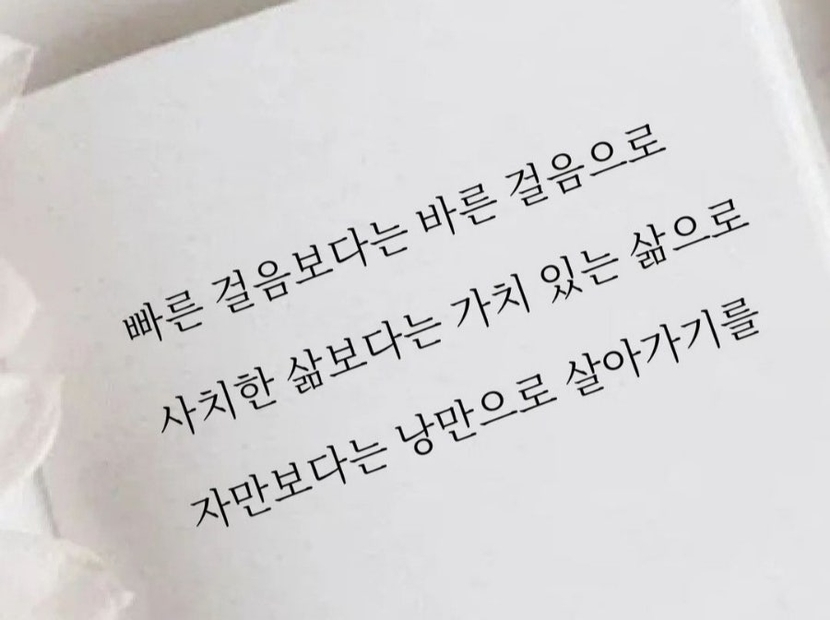 빠른 걸음보다는 바른 걸음으로
사치한 삶보다는 가치 있는 삶으로
자만보다는 낭만으로 살아가기를